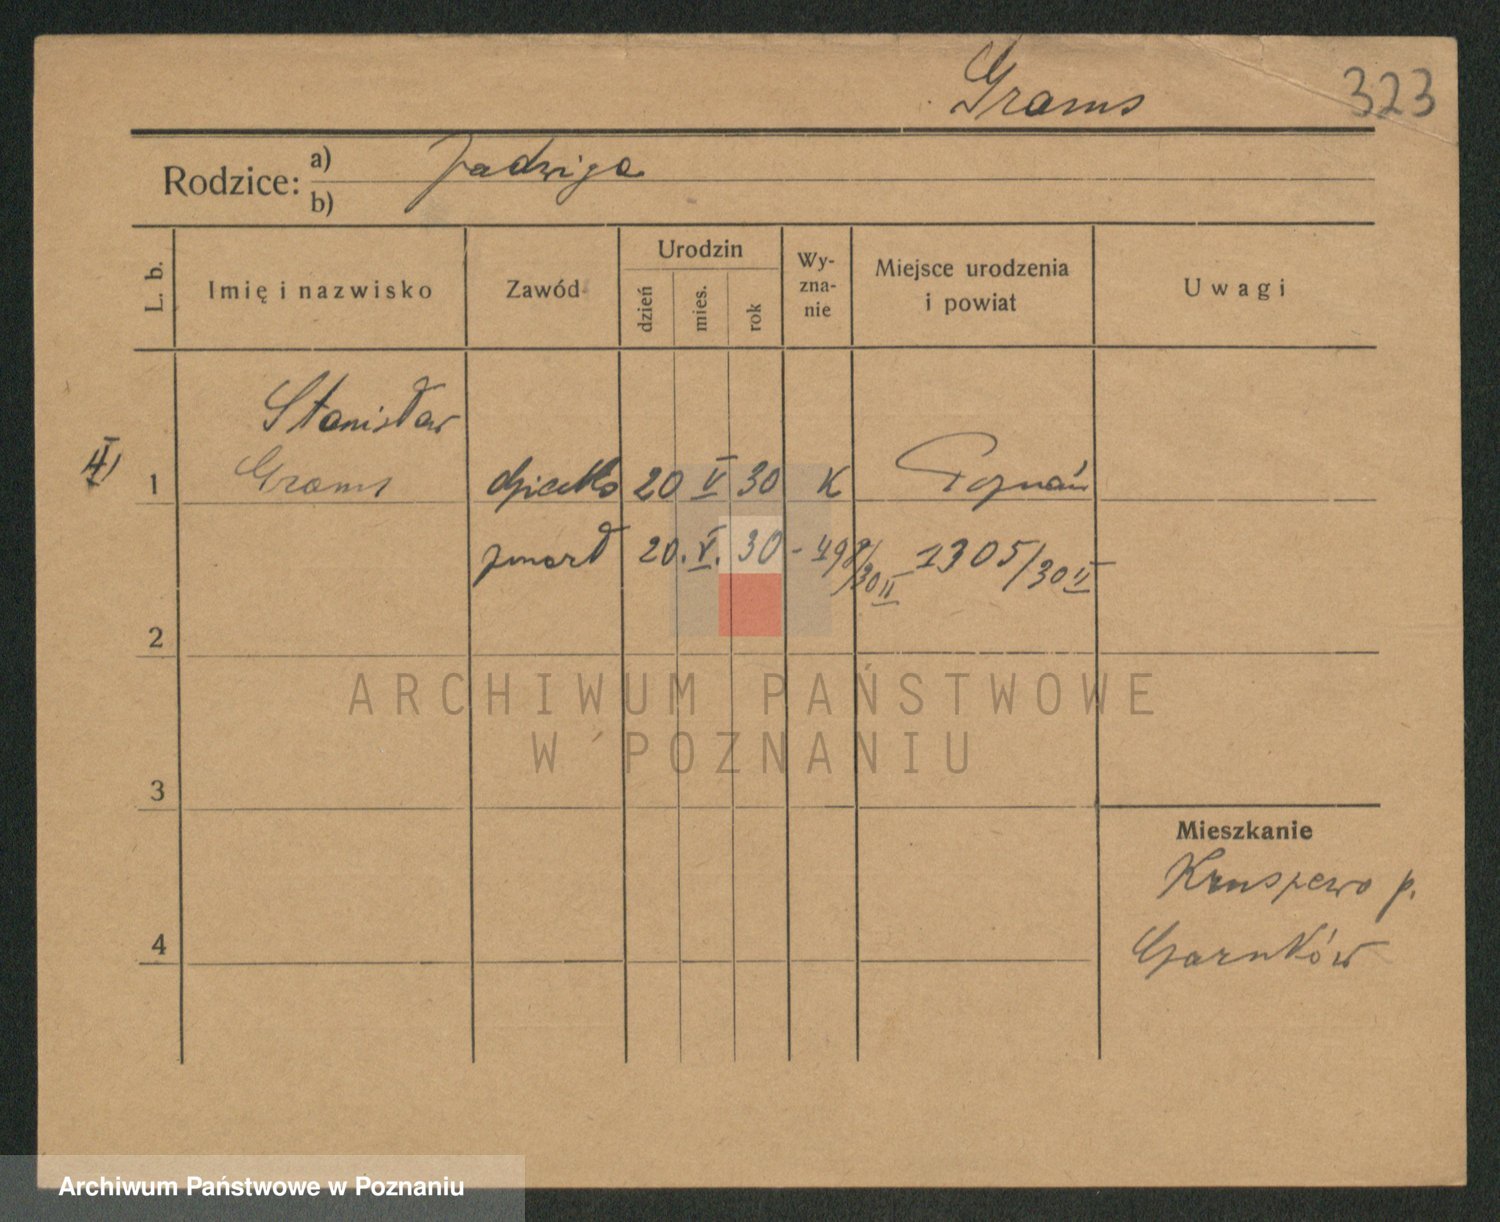 Grams
323
Rodzice: a) Jadwiga
b)
L. b.
Imię i nazwisko
Zawód
Urodzin
dzień
mies.
rok
Wy-
zna-
nie
Miejsce urodzenia
i powiat
Uwagi
Stanisław
1 Grams dziecko 20 V 30 K Poznań
zmarł 20. V. 30 - 498/30 II 1305/30 II
2
3
4
Mieszkanie
Kruszewo p.
Czarnków
ARCHIWUM PAŃSTWOWE
W POZNANIU
Archiwum Państwowe w Poznaniu